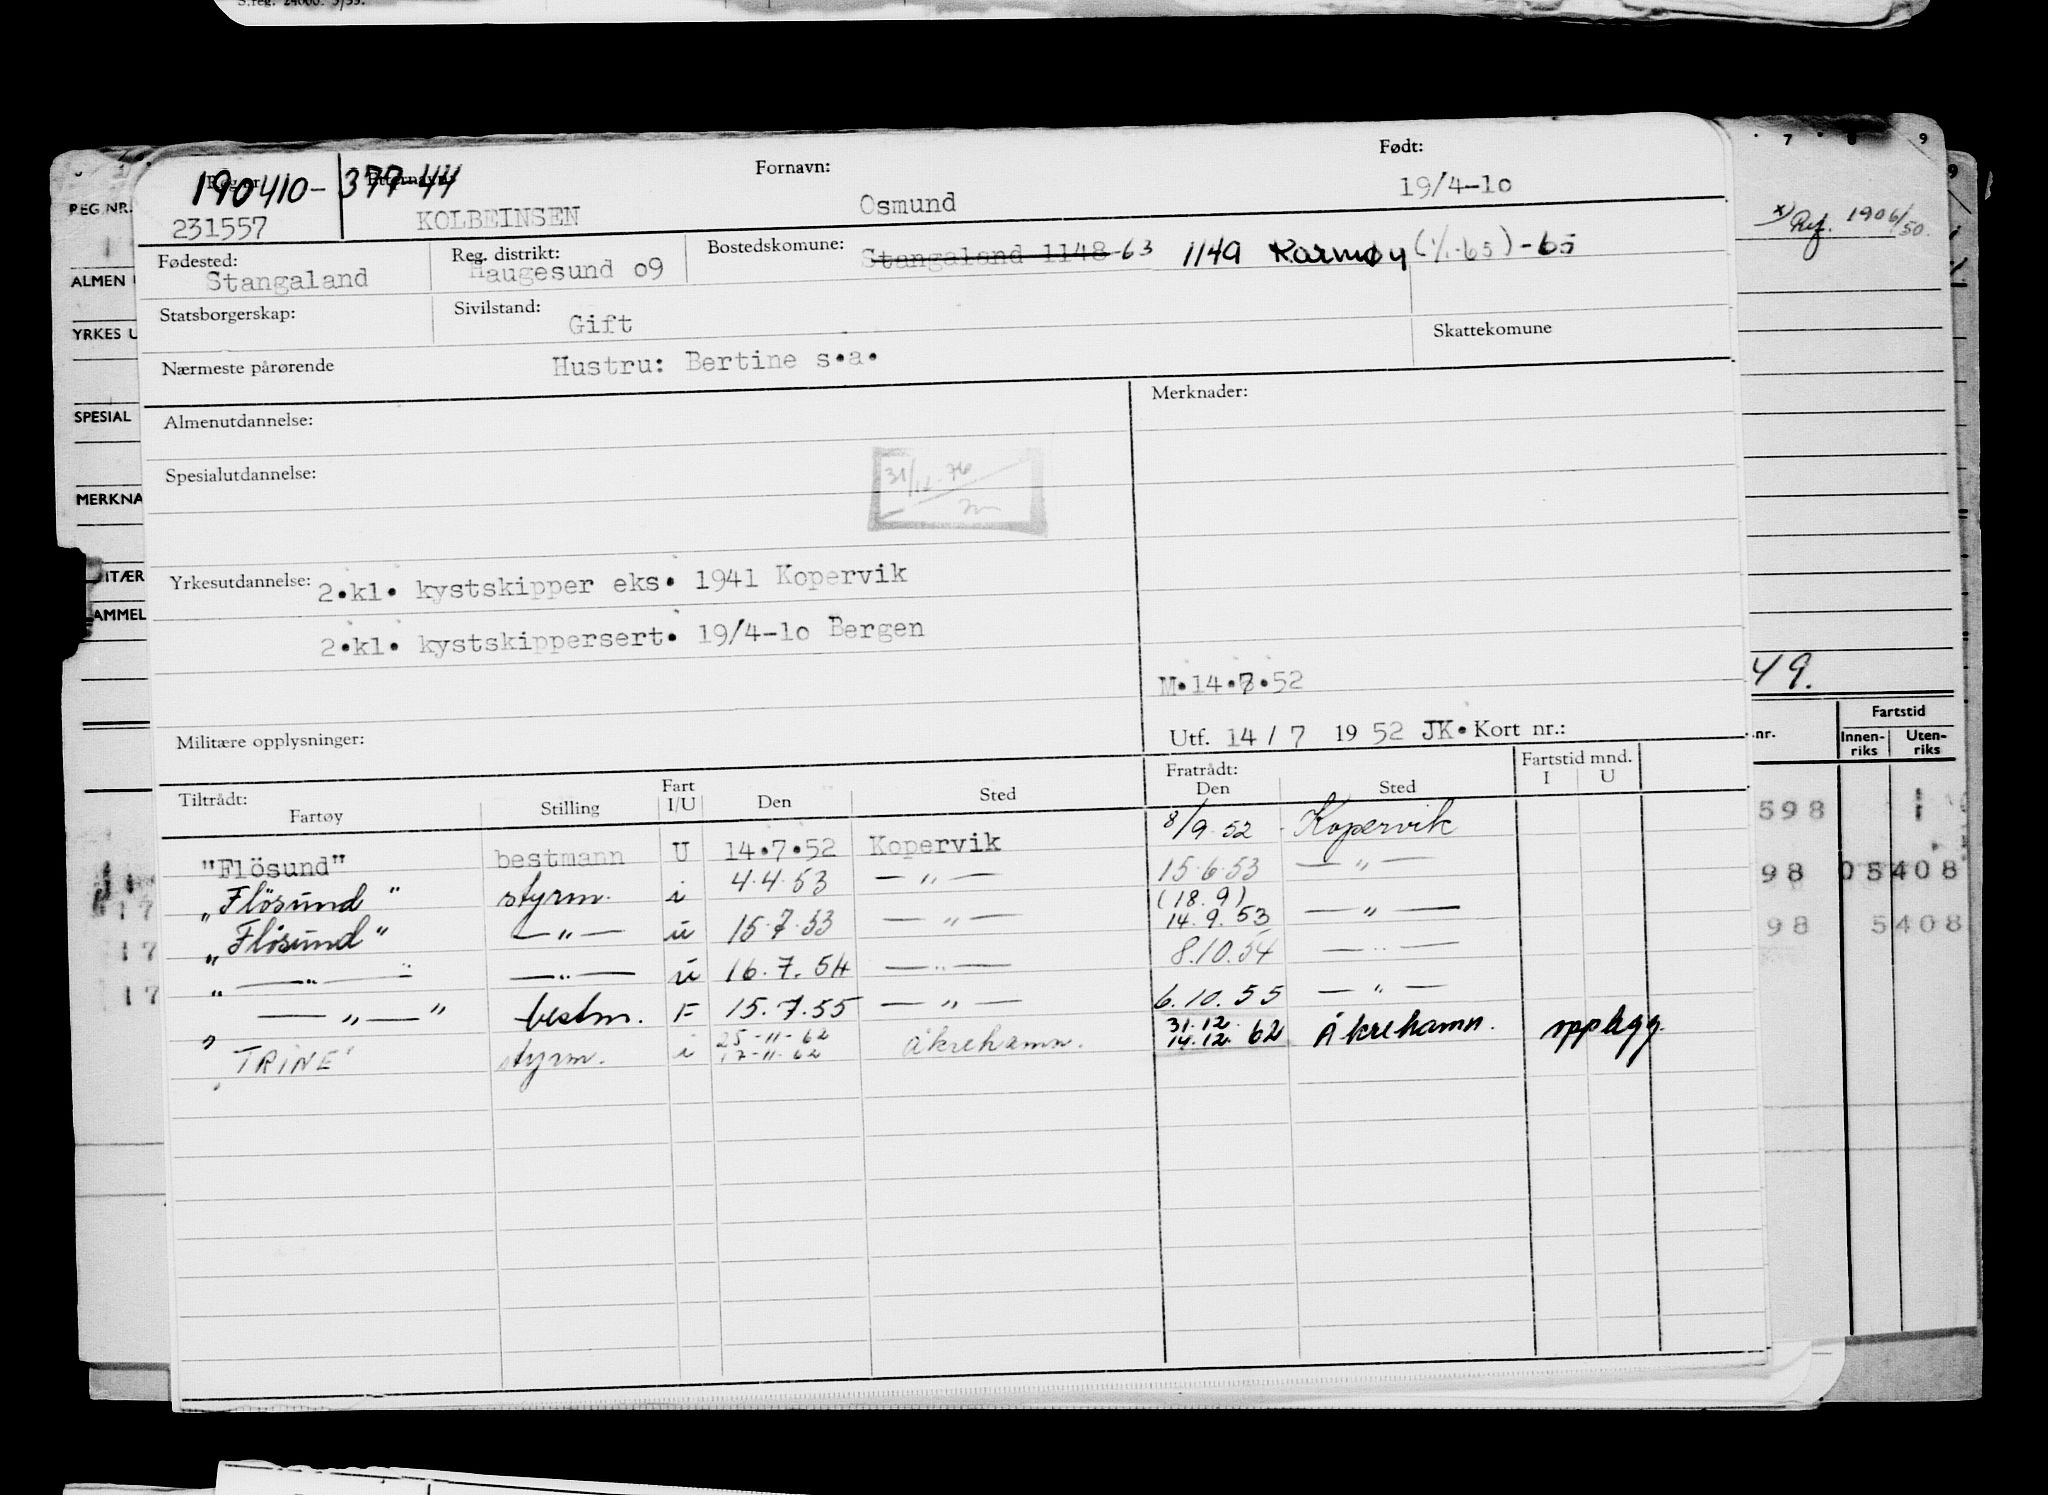 S.reg. 24000. 5/55.
7 8 9
9
190410-37744
Fornavn:
Født:
REG.NR.
231557
KOLBEINSEN
Osmund
19/4-1o
x) Ref. 1906/50.
Fødested:
Stangaland
Reg. distrikt:
Haugesund o9
Bostedskomune:
Stangaland 1148-63 1149 Karmøy (1/1-65) -65
ALMEN
Statsborgerskap:
Sivilstand:
Gift
Skattekomune
YRKES U
Nærmeste pårørende
Hustru: Bertine s.a.
Almenutdannelse:
Merknader:
SPESIAL
Spesialutdannelse:
MERKNA
ITÆR
Yrkesutdannelse:
2.kl. kystskipper eks. 1941 Kopervik
AMMEL
2.kl. kystskippersert. 19/4-1o Bergen
M.14.7.52
49.
Militære opplysninger:
Utf. 14 / 7 19 52 JK. Kort nr.:
.nr.
Fartstid
Innen-riks Uten-riks
Tiltrådt:
Fratrådt:
Fartstid mnd.
Fartøy Stilling Fart I/U Den Sted Den Sted I U
"Flösund" bestmann U 14.7.52 Kopervik 8/9.52 Kopervik
598 1
"Flösund" styrm. i 4.4.53 — " — 15.6.53 — " —
98 05408
"Flösund" — " — u 15.7.53 — " — (18.9) 14.9.53 — " —
98 5408
" — " — — " — u 16.7.54 — " — 8.10.54 — " —
— " — " bestm. F 15.7.55 — " — 6.10.55 — " —
"TRINE" styrm. i 25-11-62 17-11-62 Åkrehamn. 31.12. 14.12. 62 Åkrehamn. opplegg
17
17
17